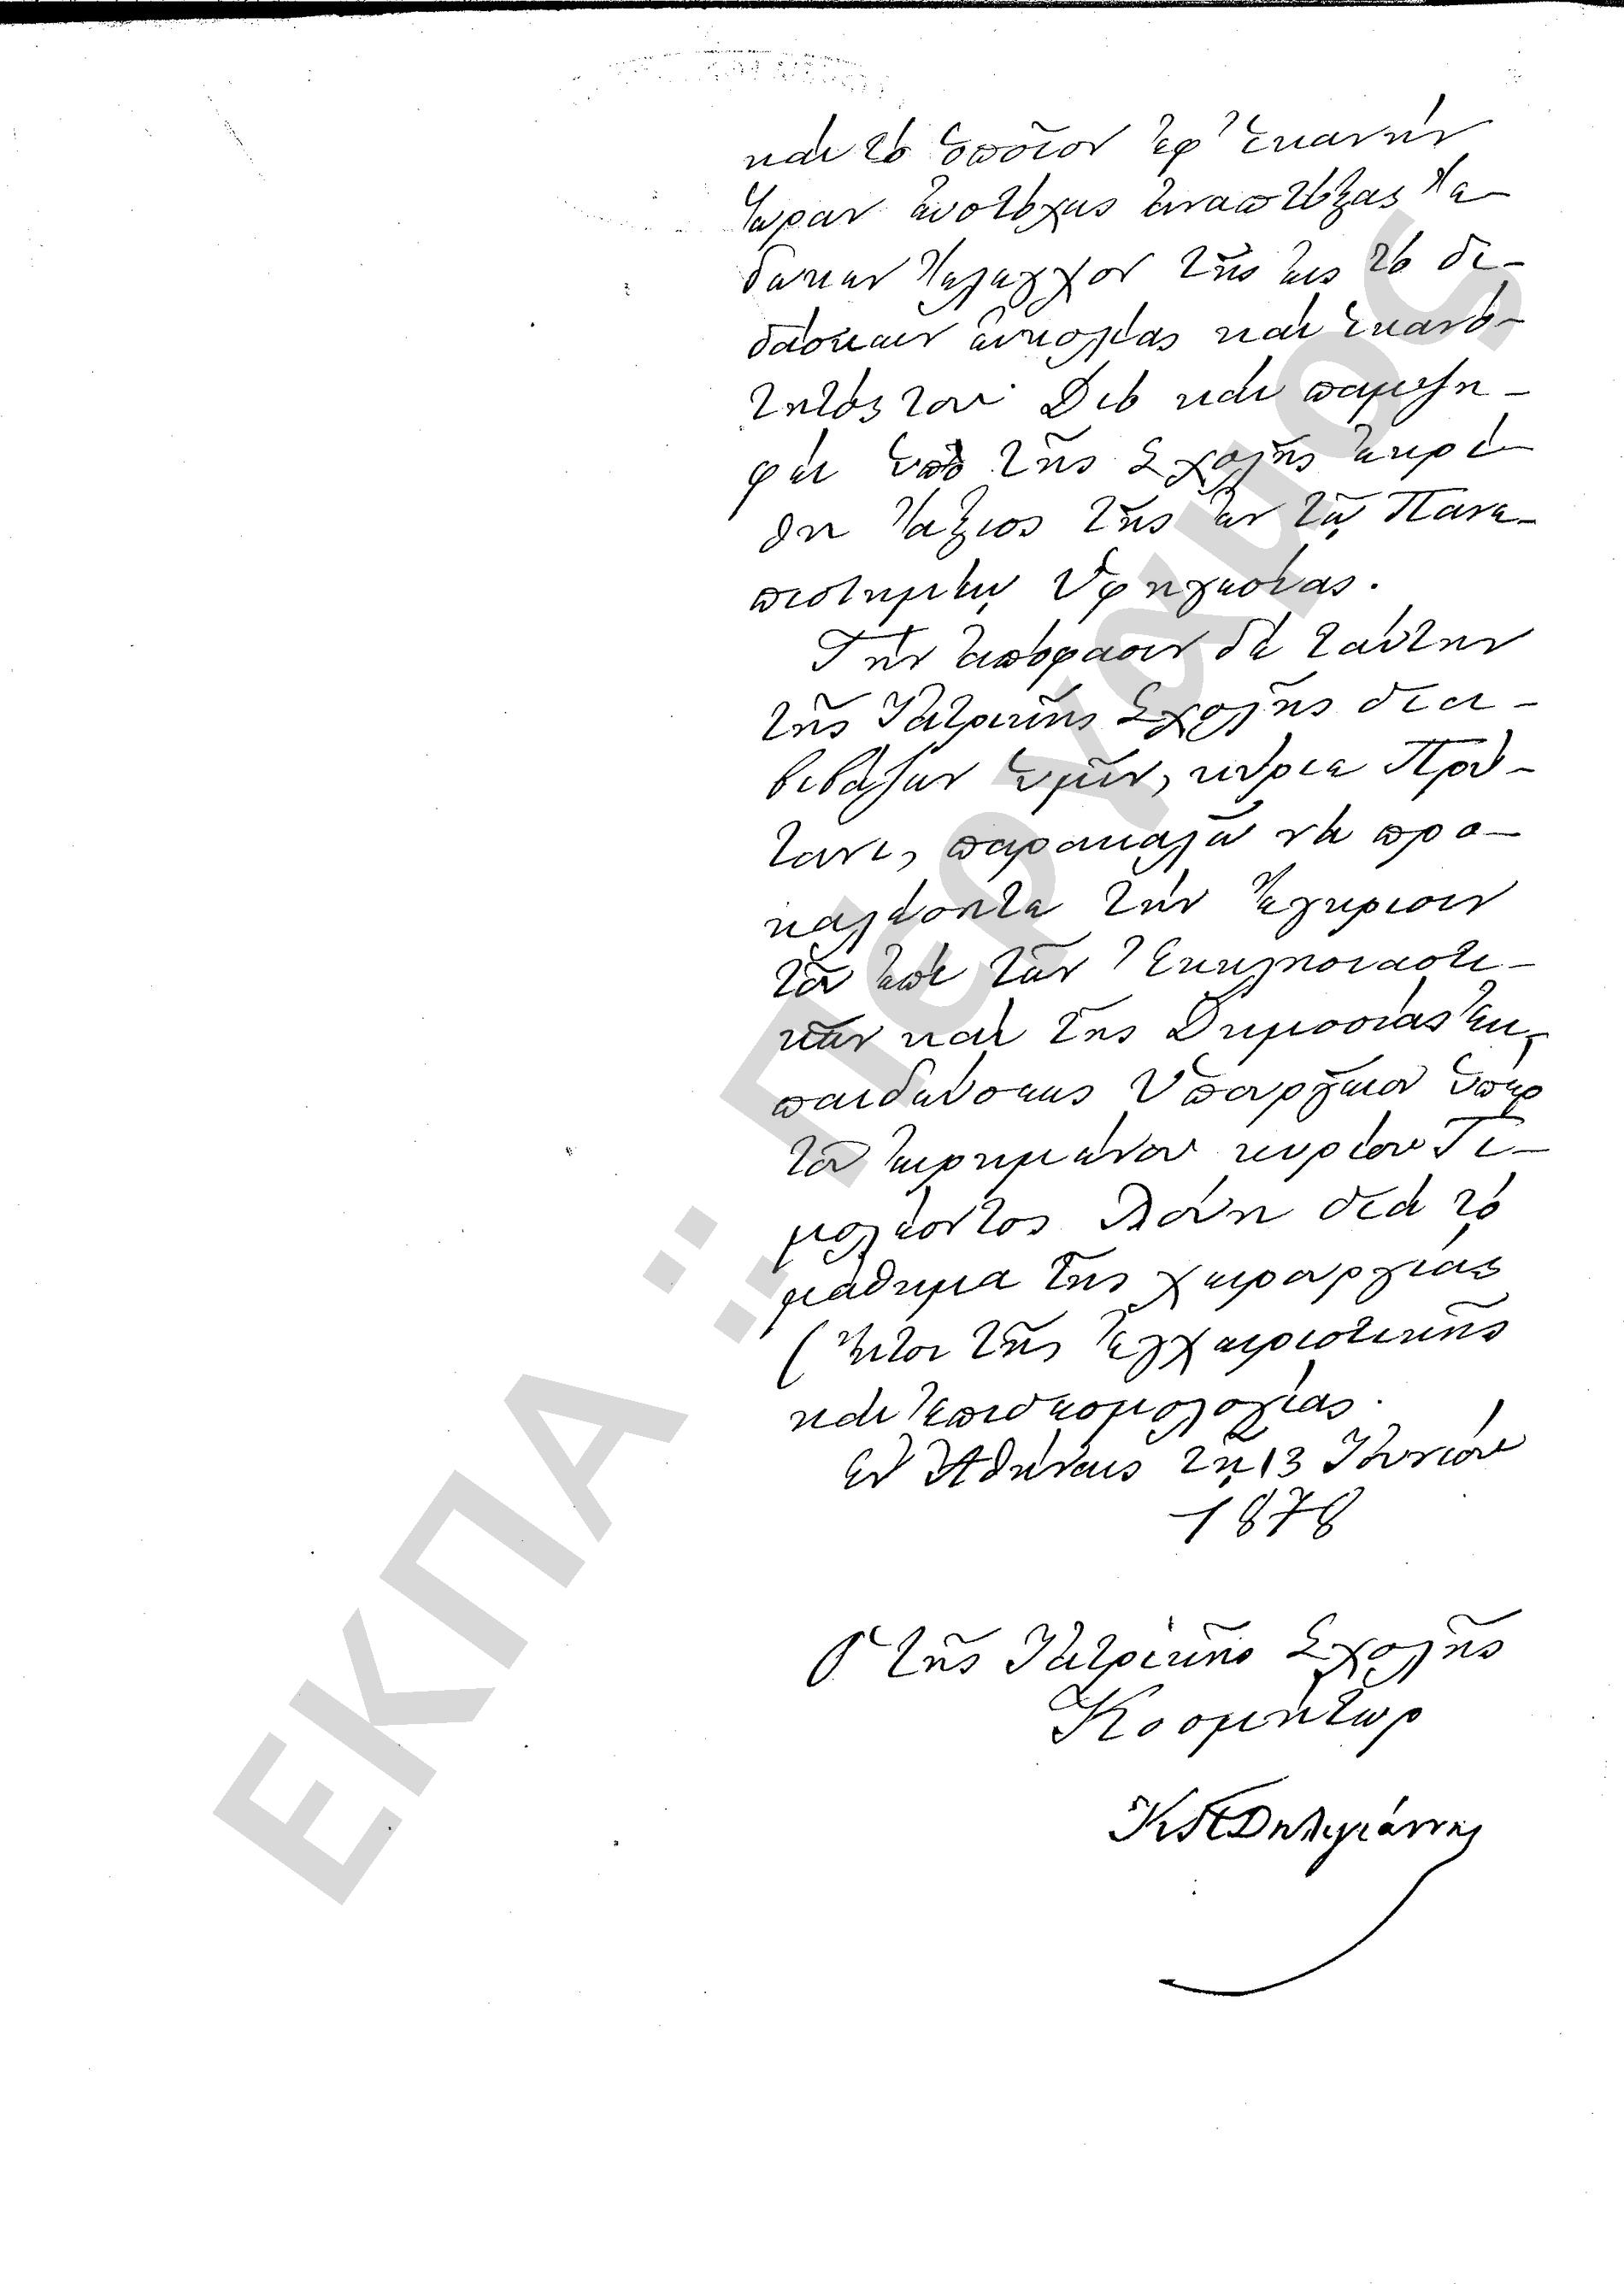 καὶ τὸ ὁποῖον ἐφ' ἱκανὴν
ὥραν εὐστόχως ἀναπτύξας ἔ-
δωκεν ἔλεγχον τῆς εἰς τὸ δι-
δάσκειν εὐκολίας καὶ ἱκανό-
τητός του. Διὸ καὶ παμψη-
φεὶ ὑπὸ τῆς Σχολῆς ἐκρί-
θη ἄξιος τῆς ἐν τῷ Πανε-
πιστημίῳ Ὑφηγεσίας.
Τὴν ἀπόφασιν δὲ ταύτην
τῆς Ἰατρικῆς Σχολῆς δια-
βιβάζων ὑμῖν, κύριε Πρύ-
τανι, παρακαλῶ νὰ προ-
καλέσητε τὴν ἔγκρισιν
τοῦ ἐπὶ τῶν Ἐκκλησιαστι-
κῶν καὶ τῆς Δημοσίας Ἐκ-
παιδεύσεως Ὑπουργείου ὑπὲρ
τοῦ εἰρημένου κυρίου Τι-
μολέοντος Λούη διὰ τὸ
μάθημα τῆς χειρουργίας
(ἤτοι τῆς ἐγχειριστικῆς
καὶ ἐπιδεσμολογίας.
Ἐν Ἀθήναις τῇ 13 Ἰουνίου
1878
Ὁ τῆς Ἰατρικῆς Σχολῆς
Κοσμήτωρ
ΚΠΔηλιγιάννης
ΕΚΠΑ: Πέργαμος